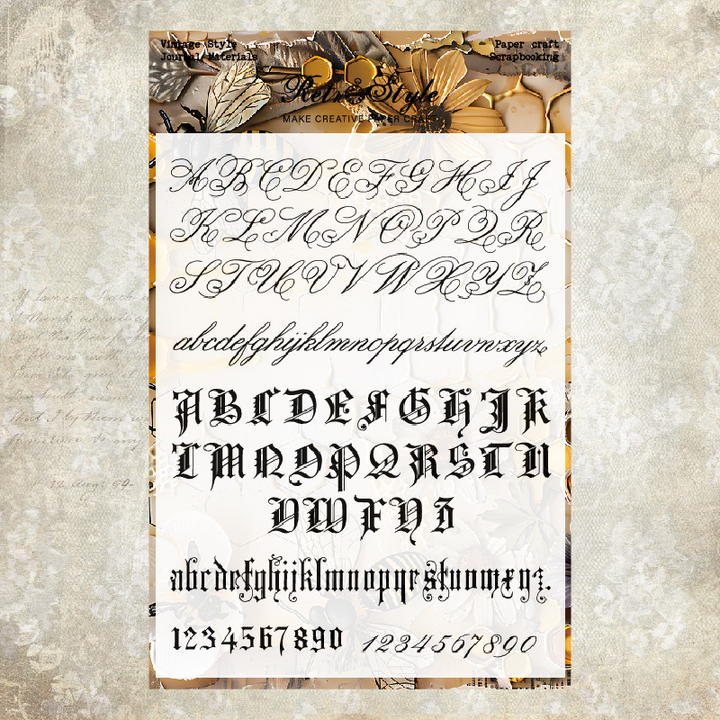 Vintage Style
Journal Materials
Paper craft
Scrapbooking
Retro Style
MAKE CREATIVE PAPER CRAFT
A B C D E F G H I J
K L M N O P Q R
S T U V W X Y Z
abcdefghijklmnopqrstuvwxyz
A B C D E F G H J K
L M N O P Q R S T U
V W X Y Z
abcdefghijklmnopqrstuvwxyz.
1234567890 1234567890